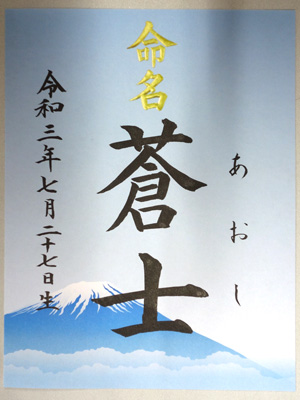 命名
あおし
蒼士
令和三年七月二十七日生